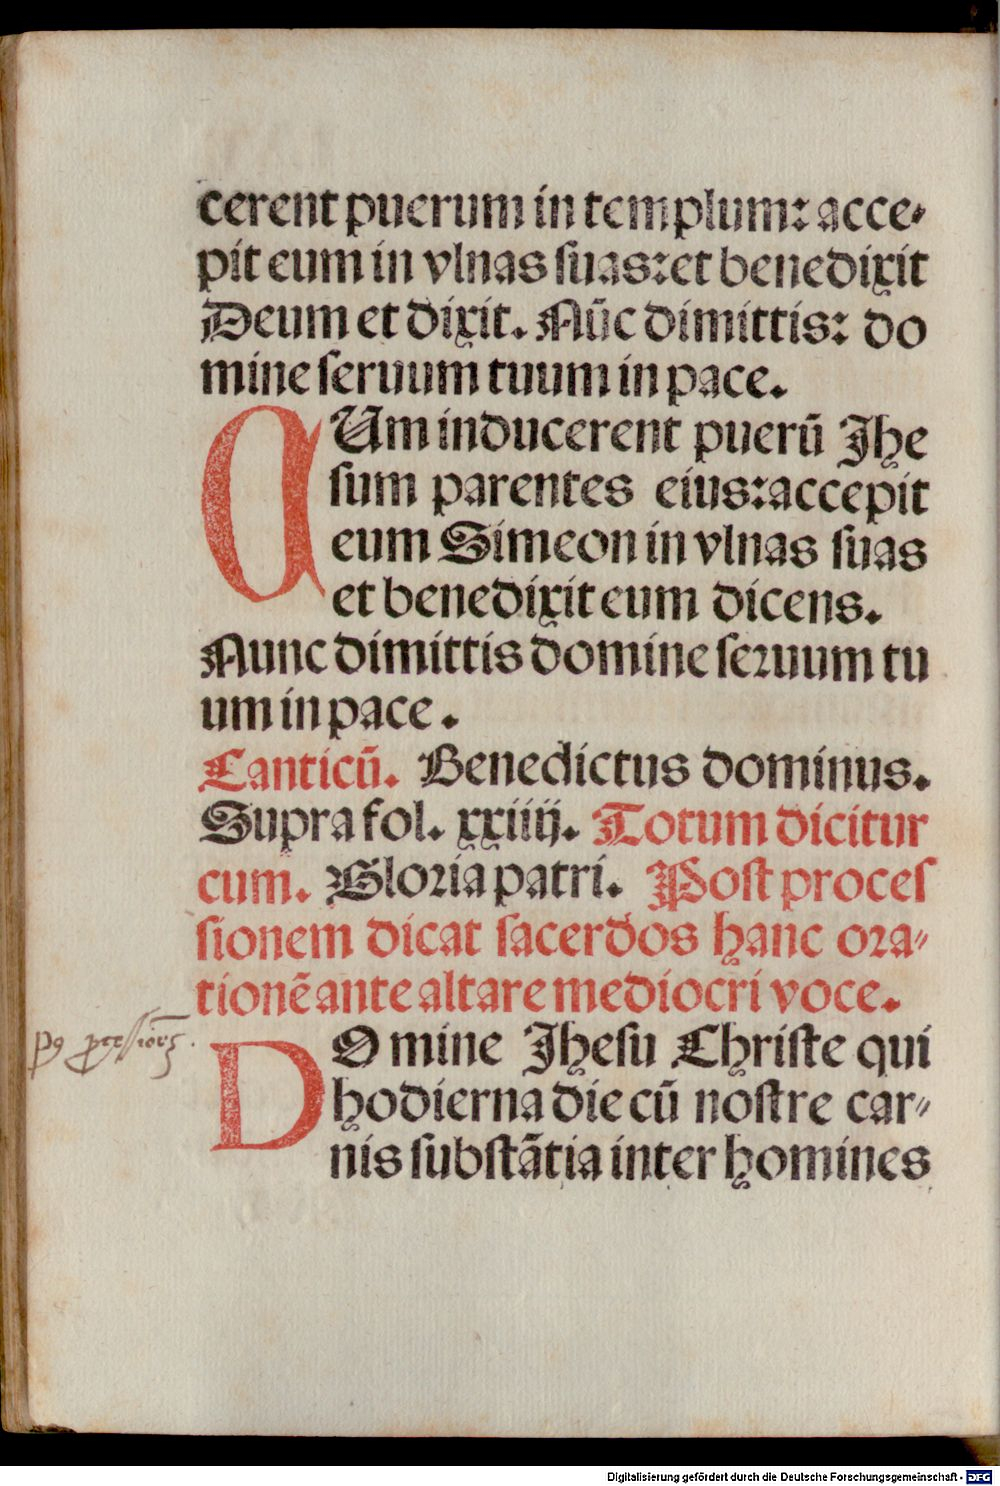 cerent puerum in templum: acce-
pit eum in vlnas suas: et benedixit
Deum et dixit. Nūc dimittis: do
mine seruum tuum in pace.
CUm inducerent puerū Jhe
sum parentes eius: accepit
eum Simeon in vlnas suas
et benedixit eum dicens.
Nunc dimittis domine seruum tu
um in pace.
Canticū. Benedictus dominus.
Supra fol. xxiiij. Totum dicitur
cum. Gloria patri. Post proces
sionem dicat sacerdos hanc ora-
tionē ante altare mediocri voce.
DOmine Jhesu Christe qui
hodierna die cū nostre car-
nis substātia inter homines
Digitalisierung gefördert durch die Deutsche Forschungsgemeinschaft - DFG